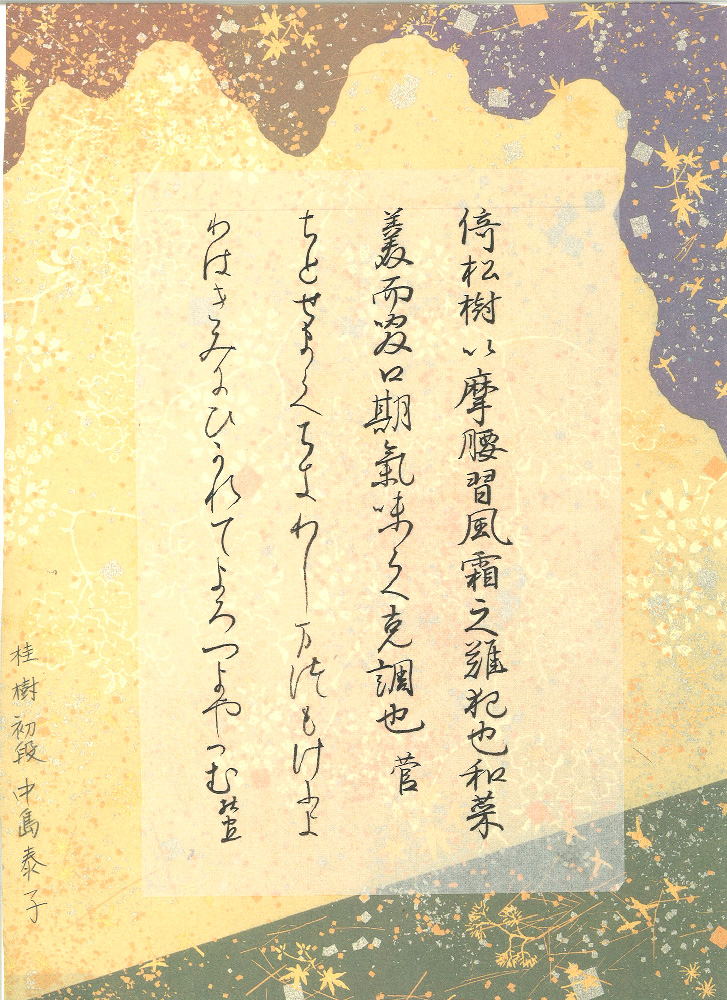 倚松樹以摩腰習風霜之難犯也和菜
羹而啜口期氣味之克調也 菅
ちとせまてちきりし万徒もけふよ
りはきみにひかれてよろつよやへむ 能宣
桂樹 初段 中島泰子